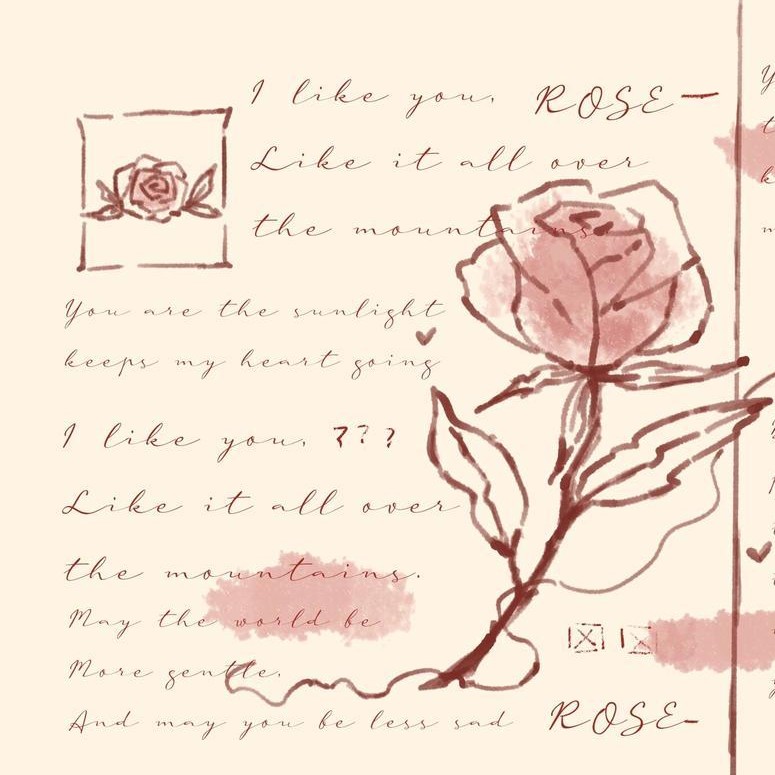 I like you, ROSE—
Like it all over
the mountains
You are the sunlight
keeps my heart going
I like you, ???
Like it all over
the mountains.
May the world be
More gentle.
And may you be less sad ROSE-